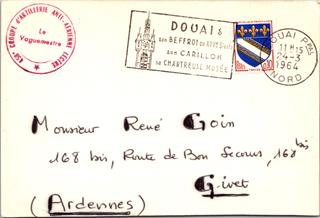 45e GROUPE D'ARTILLERIE ANTI-AÉRIENNE LÉGÈRE
Le
Vaguemestre
DOUAI &
son BEFFROI du XIVe Siècle
son CARILLON
sa CHARTREUSE MUSÉE
DOUAI Ppal
11H15
24-3
1964
NORD
0,10
Monsieur René Goin
168 bis, Route de Bon Secours, 168 bis
Givet
(Ardennes)